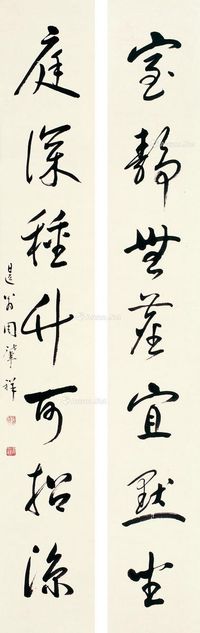 室静無塵宜默坐
庭深種竹可招涼
退翁周肇祥